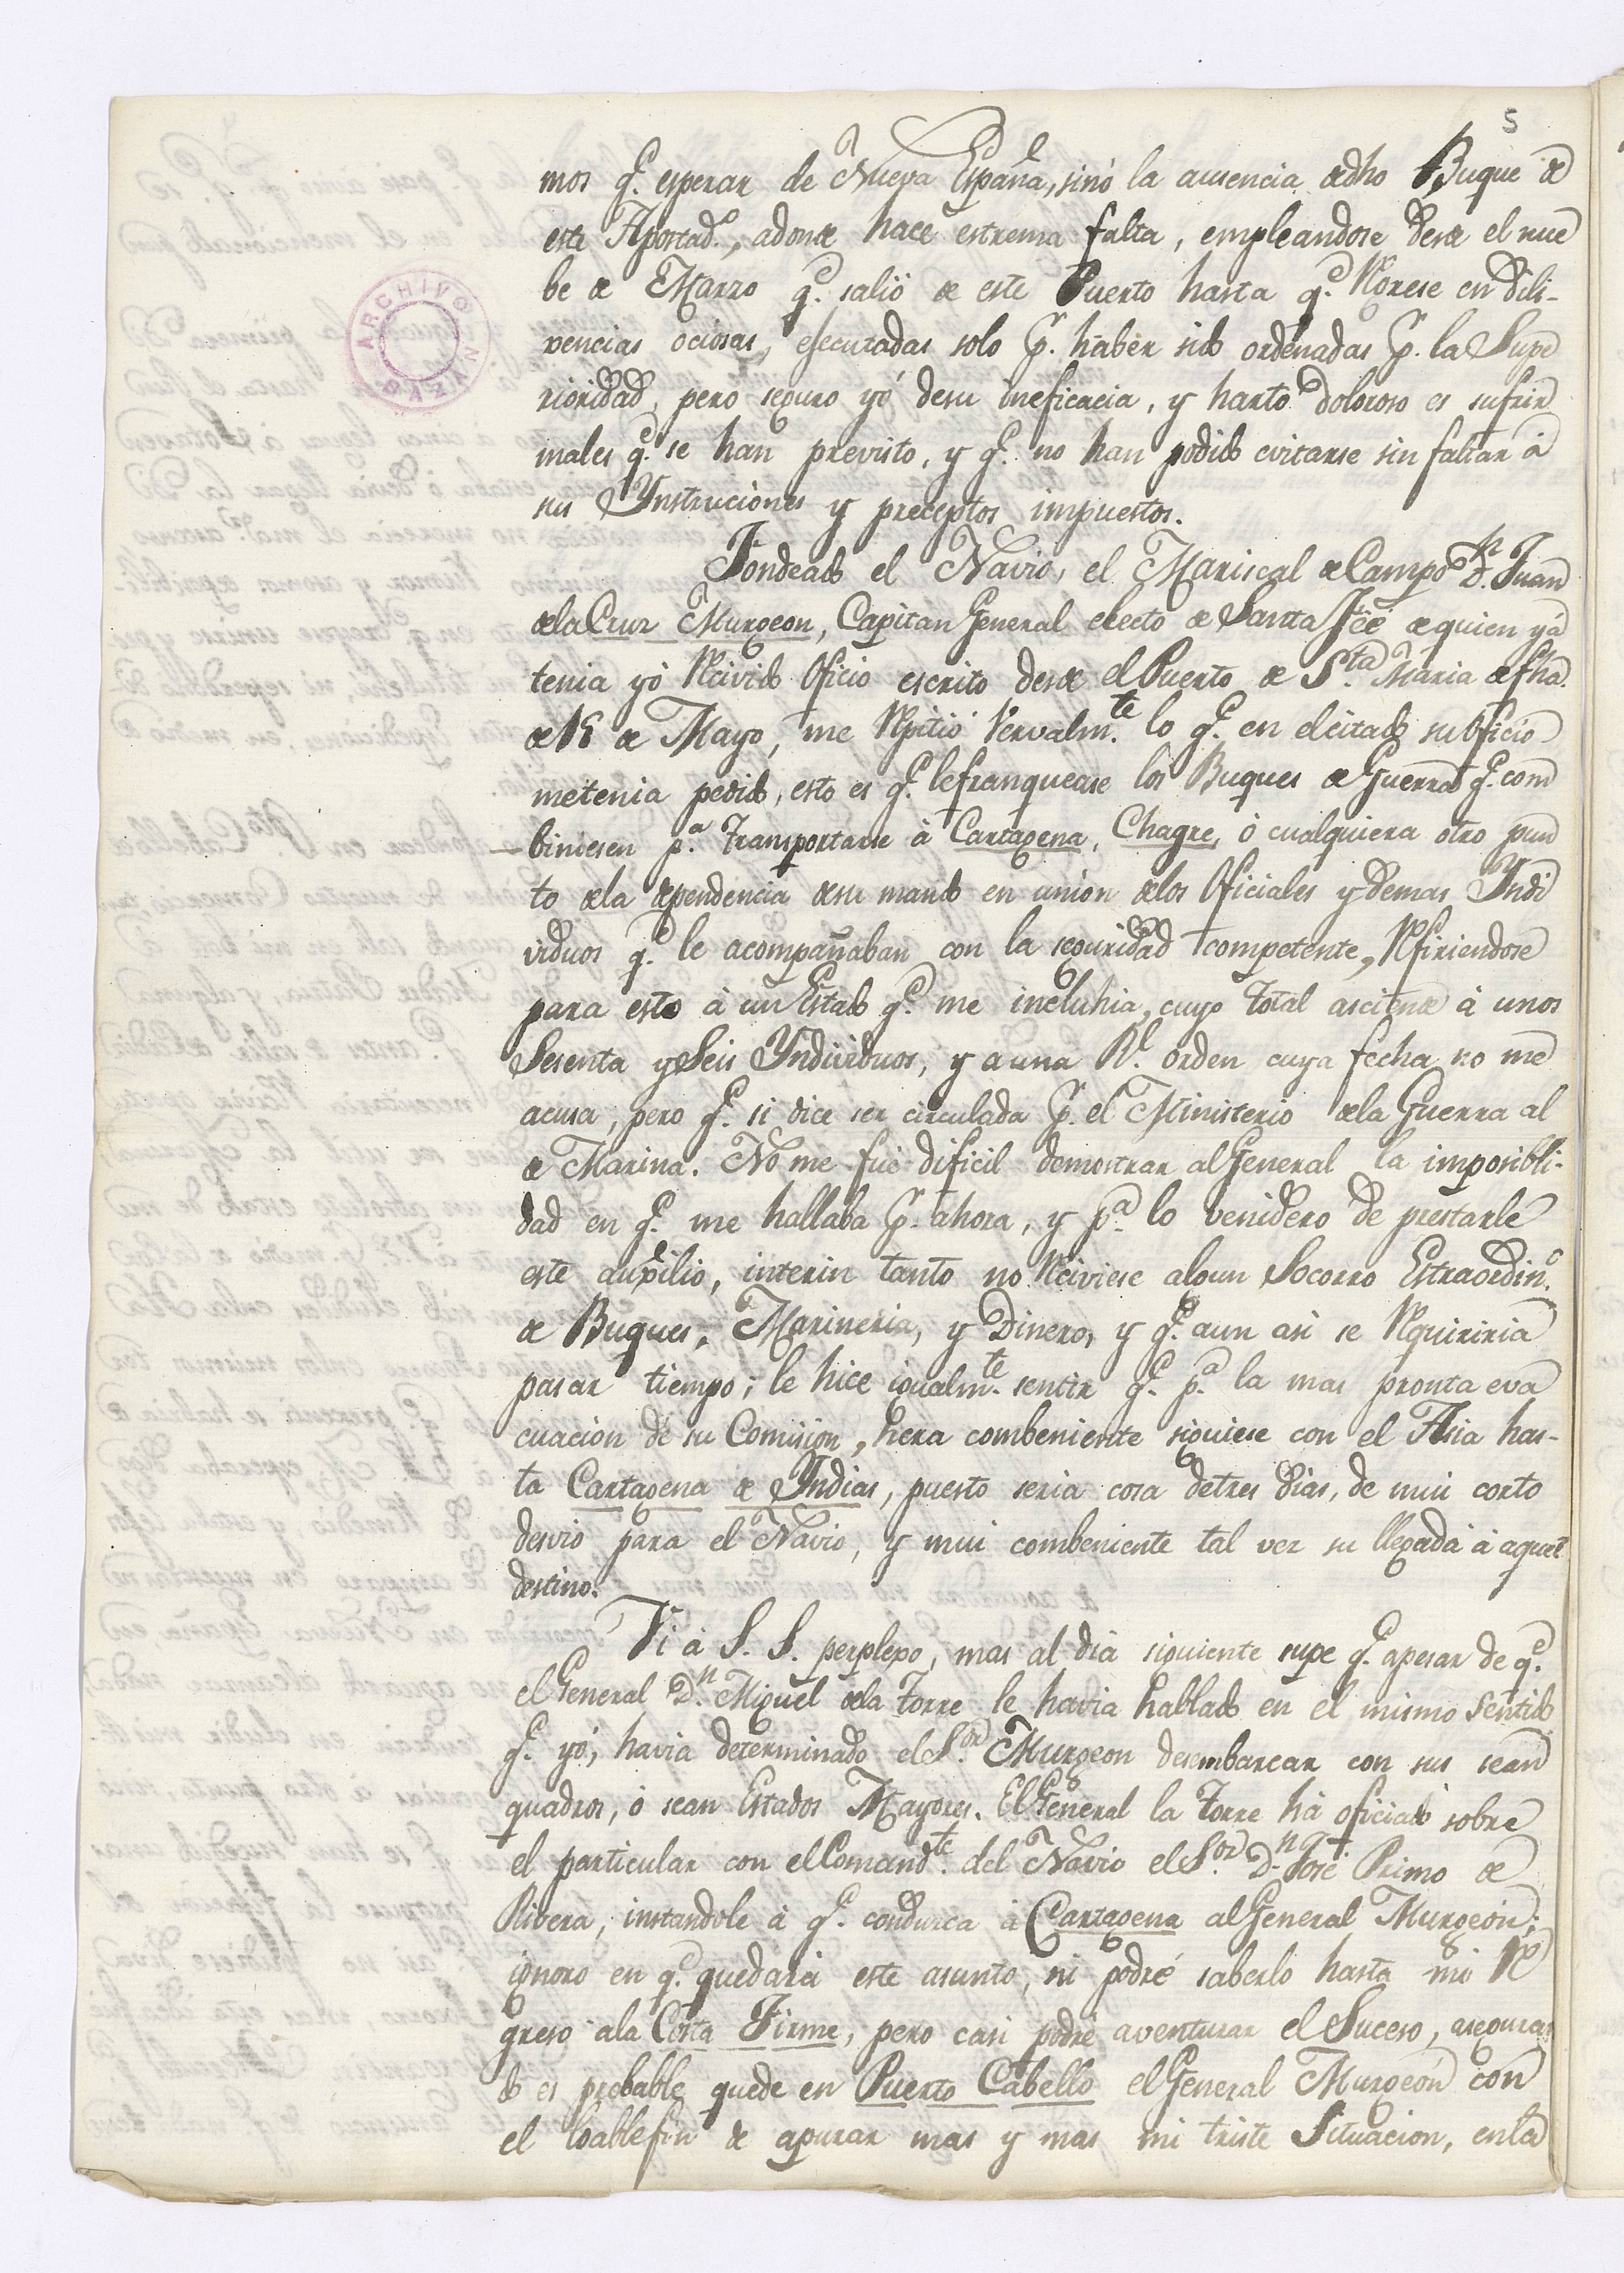 5
mos q.e esperar de Nueva España, sinó la ausencia dedho Buque de
este Apostad.o, adonde hace estrema falta, empleandose desde el nue
be de Marzo q.e salió de este Puerto hasta q.e Rgrese en dili-
gencias ociosas, ejecutadas solo p.r haber sido ordenadas p.r la Supe
rioridad, pero seguro yó desu ineficacia, y harto doloroso es sufrir
males q.e se han previsto, y q.e no han podido evitarse sin faltar á
sus Ynstruciones y preceptos impuestos.
Fondeado el Navio, el Mariscal de Campo D.n Juan
dela Cruz Murgeon, Capitan General electo de Santa Feé de quien yá
tenia yó Rcivido Oficio escrito desde el Puerto de S.ta Maria de fha.
de 18 de Mayo, me Rpitió Vervalm.te lo q.e en elcitado suOficio
metenia pedido, esto es q.e lefranquease los Buques de Guerra q.e com
biniesen p.a Transportarse á Cartagena, Chagre, ó cualquiera otro pun
to dela dependencia desu mando en union delos Oficiales y demas Yndi
viduos q.e le acompañaban con la seguridad competente, Rfiriendose
para esto á un Estado q.e me incluhia, cuyo total asciende á unos
Sesenta ySeis Yndividuos, y a una R.l orden cuya fecha no me
acusa, pero q.e si dice ser circulada p.r el Ministerio dela Guerra al
de Marina. No me fué dificil demostrar alGeneral la imposibli-
dad en q.e me hallaba p.r ahora, y p.a lo venidero de prestarle
este auxilio, interin tanto no Rciviese algun Socorro Estraordin.o
de Buques, Marineria, y Dinero, y q.e aun asi se Rquiriria
pasar tiempo; le hice igualm.te sentir q.e p.a la mas pronta eva
cuacion de su Comision, hera combeniente siguiese con el Asia has-
ta Cartagena de Yndias, puesto seria cosa detres dias, de mui corto
desvio para el Navio, y mui combeniente tal vez su llegada á aquel
destino.
Vi á S. S. perplexo, mas al dia siguiente supe q.e apesar de q.e
elGeneral D.n Miguel dela Torre le havia hablado en el mismo Sentido
q.e yó, havia determinado elS.or Murgeon desembarcar con sus sean
quadros, ó sean Estados Mayores. ElGeneral la Torre há oficiado sobre
el particular con elComand.te del Navio elS.or D.n José Primo de
Rivera, instandole á q.e conduzca á Cartagena alGeneral Murgeon;
ignoro en q.e quedará este asunto, ni podré saberlo hasta mi R
greso ala Costa Firme, pero casi podré aventurar el Suceso, aseguran
do es probable quede en Puerto Cabello elGeneral Murgeón con
el loablefin de apurar mas y mas mi triste Situacion, enla
ARCHIVO BAZAN